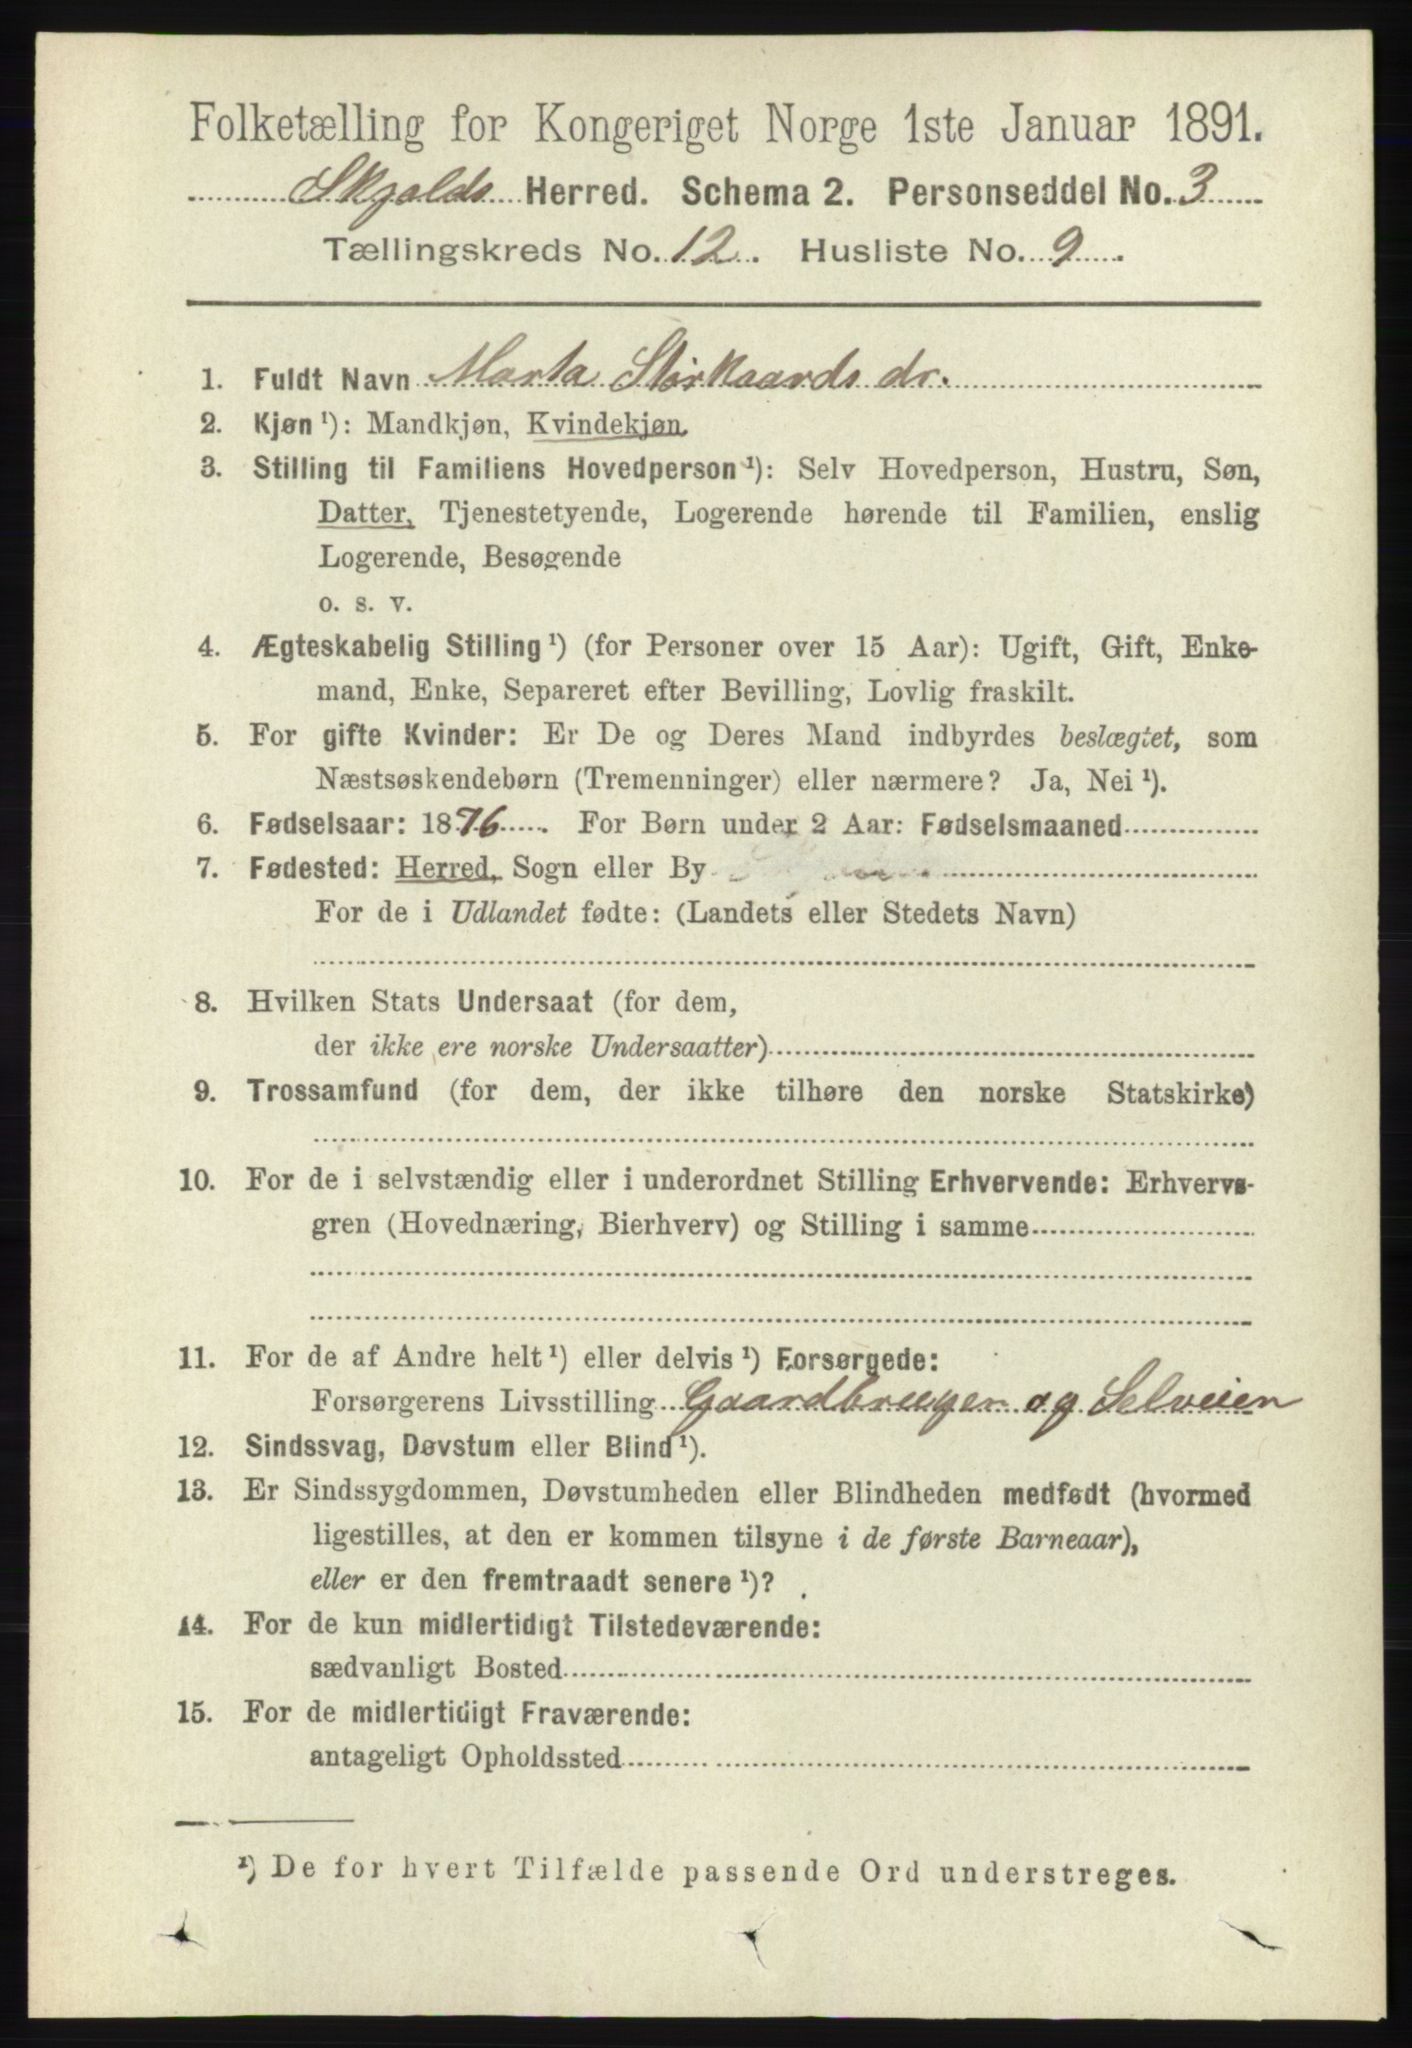 Folketælling for Kongeriget Norge 1ste Januar 1891.
Skjolds Herred. Schema 2. Personseddel No. 3
Tællingskreds No. 12. Husliste No. 9.
1. Fuldt Navn Marta Størkaards dr.
2. Kjøn ¹): Mandkjøn, Kvindekjøn.
3. Stilling til Familiens Hovedperson ¹): Selv Hovedperson, Hustru, Søn,
Datter, Tjenestetyende, Logerende hørende til Familien, enslig
Logerende, Besøgende
o. s. v.
4. Ægteskabelig Stilling ¹) (for Personer over 15 Aar): Ugift, Gift, Enke-
mand, Enke, Separeret efter Bevilling, Lovlig fraskilt.
5. For gifte Kvinder: Er De og Deres Mand indbyrdes beslægtet, som
Næstsøskendebørn (Tremenninger) eller nærmere? Ja, Nei ¹).
6. Fødselsaar: 1876. For Børn under 2 Aar: Fødselsmaaned
7. Fødested: Herred, Sogn eller By
For de i Udlandet fødte: (Landets eller Stedets Navn)
8. Hvilken Stats Undersaat (for dem,
der ikke ere norske Undersaatter)
9. Trossamfund (for dem, der ikke tilhøre den norske Statskirke)
10. For de i selvstændig eller i underordnet Stilling Erhvervende: Erhvervs-
gren (Hovednæring, Bierhverv) og Stilling i samme
11. For de af Andre helt ¹) eller delvis ¹) Forsørgede:
Forsørgerens Livsstilling Gaardbruger og Selveier
12. Sindssvag, Døvstum eller Blind ¹).
13. Er Sindssygdommen, Døvstumheden eller Blindheden medfødt (hvormed
ligestilles, at den er kommen tilsyne i de første Barneaar),
eller er den fremtraadt senere ¹)?
14. For de kun midlertidigt Tilstedeværende:
sædvanligt Bosted
15. For de midlertidigt Fraværende:
antageligt Opholdssted
¹) De for hvert Tilfælde passende Ord understreges.